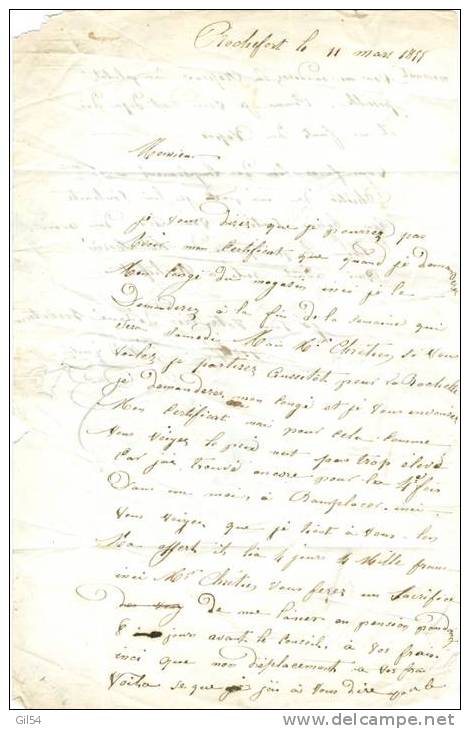 Rochefort le 11 mars 1855
Monsieur
je vous direz que je pourrez pas
avoir mon certificat que quand je demanderez
Mon congé du magasin inci je le
Demanderez à la fin de la semaine qui
sera samedi Mon Mr Chrétien si vous
voulez je partirez Aussitôt pour La Rochelle
je demanderez mon congé et je vous enverrez
Mon certificat mai pour cela comme
Vous voiyez le prid nest pas trop élevé
Car jais trouvé encore pour la 4e fois
Dans un mois, à Remplacer, inci
Vous voiyez que je tient à vous. les
offert il lia 4 jours 2 Mille franc
inci Mr Chrétien vous ferez un Sacrifice
de me laiser en pension pendant
8 jours avant le Conseil, a vos frai.
inci que mon déplacement a vos frai
Voila se que jais à vous dire
Gil54
www.delcampe.net